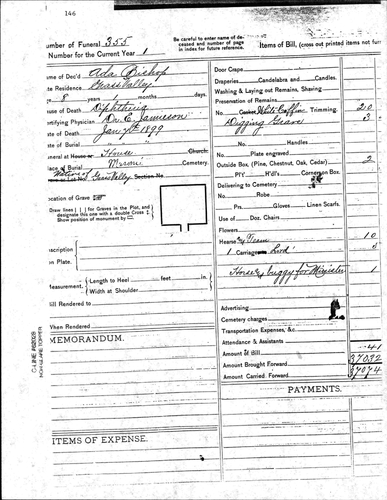 146
umber of Funeral 355
Number for the Current Year 1
Be carefully to enter name of de-
cessed and number of page
in index for future reference.
Items of Bill, (cross out printed items not fur
me of Dec'd Ada Bishop
te Residence Grass Valley
ge 8 years months days.
use of Death Diphtheria
ertifying Physician Dr. C. Jamieson
te of Death Jan 7th 1899
te of Burial " "
neral at House or House Church.
lace of Burial Moroni Cemetery.
or Lot No. Grass Valley Section No
ocation of Grave
Draw lines ( ) for Graves in the Plot, and
designate this one with a double Cross
Show position of monument by
nscription
n Plate.
Measurement. Length to Heel feet in.
Width at Shoulder
ill Rendered to
When Rendered
MEMORANDUM.
ITEMS OF EXPENSE.
Door Crape
Draperies Candelabra and Candles.
Washing & Laying out Remains, Shaving
Preservation of Remains
No. Casket White Coffin Trimming. 20
Digging Grave 3
No. Handles
No. Plate engraved
Outside Box, (Pine, Chestnut, Oak, Cedar) 2
H'dl's Box
Delivering to Cemetery
No. Robe
Prs. Gloves Linen Scarfs.
Use of Doz. Chairs
Flowers
Hearse & Team 10
1 Carriages
Horse & buggy for Minister 1
Advertising
Cemetery charges
Transportation Expenses, &c.
Attendance & Assistants
Amount of Bill 41
Amount Brought Forward 37032
Amount Carried Forward 37074
PAYMENTS.